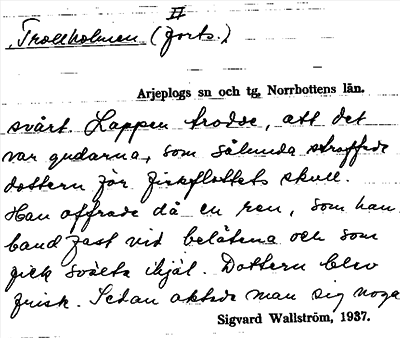 II
Trollholmen (forts.)
Arjeplogs sn och tg. Norrbottens län.
svårt. Lappen trodde, att det
var gudarna, som sålunda straffade
dottern för fiskflottets skull.
Han offrade då en ren, som han
band fast vid belätena och som
fick svälta ihjäl. Dottern blev
frisk. Sedan aktade man sig noga
Sigvard Wallström, 1937.